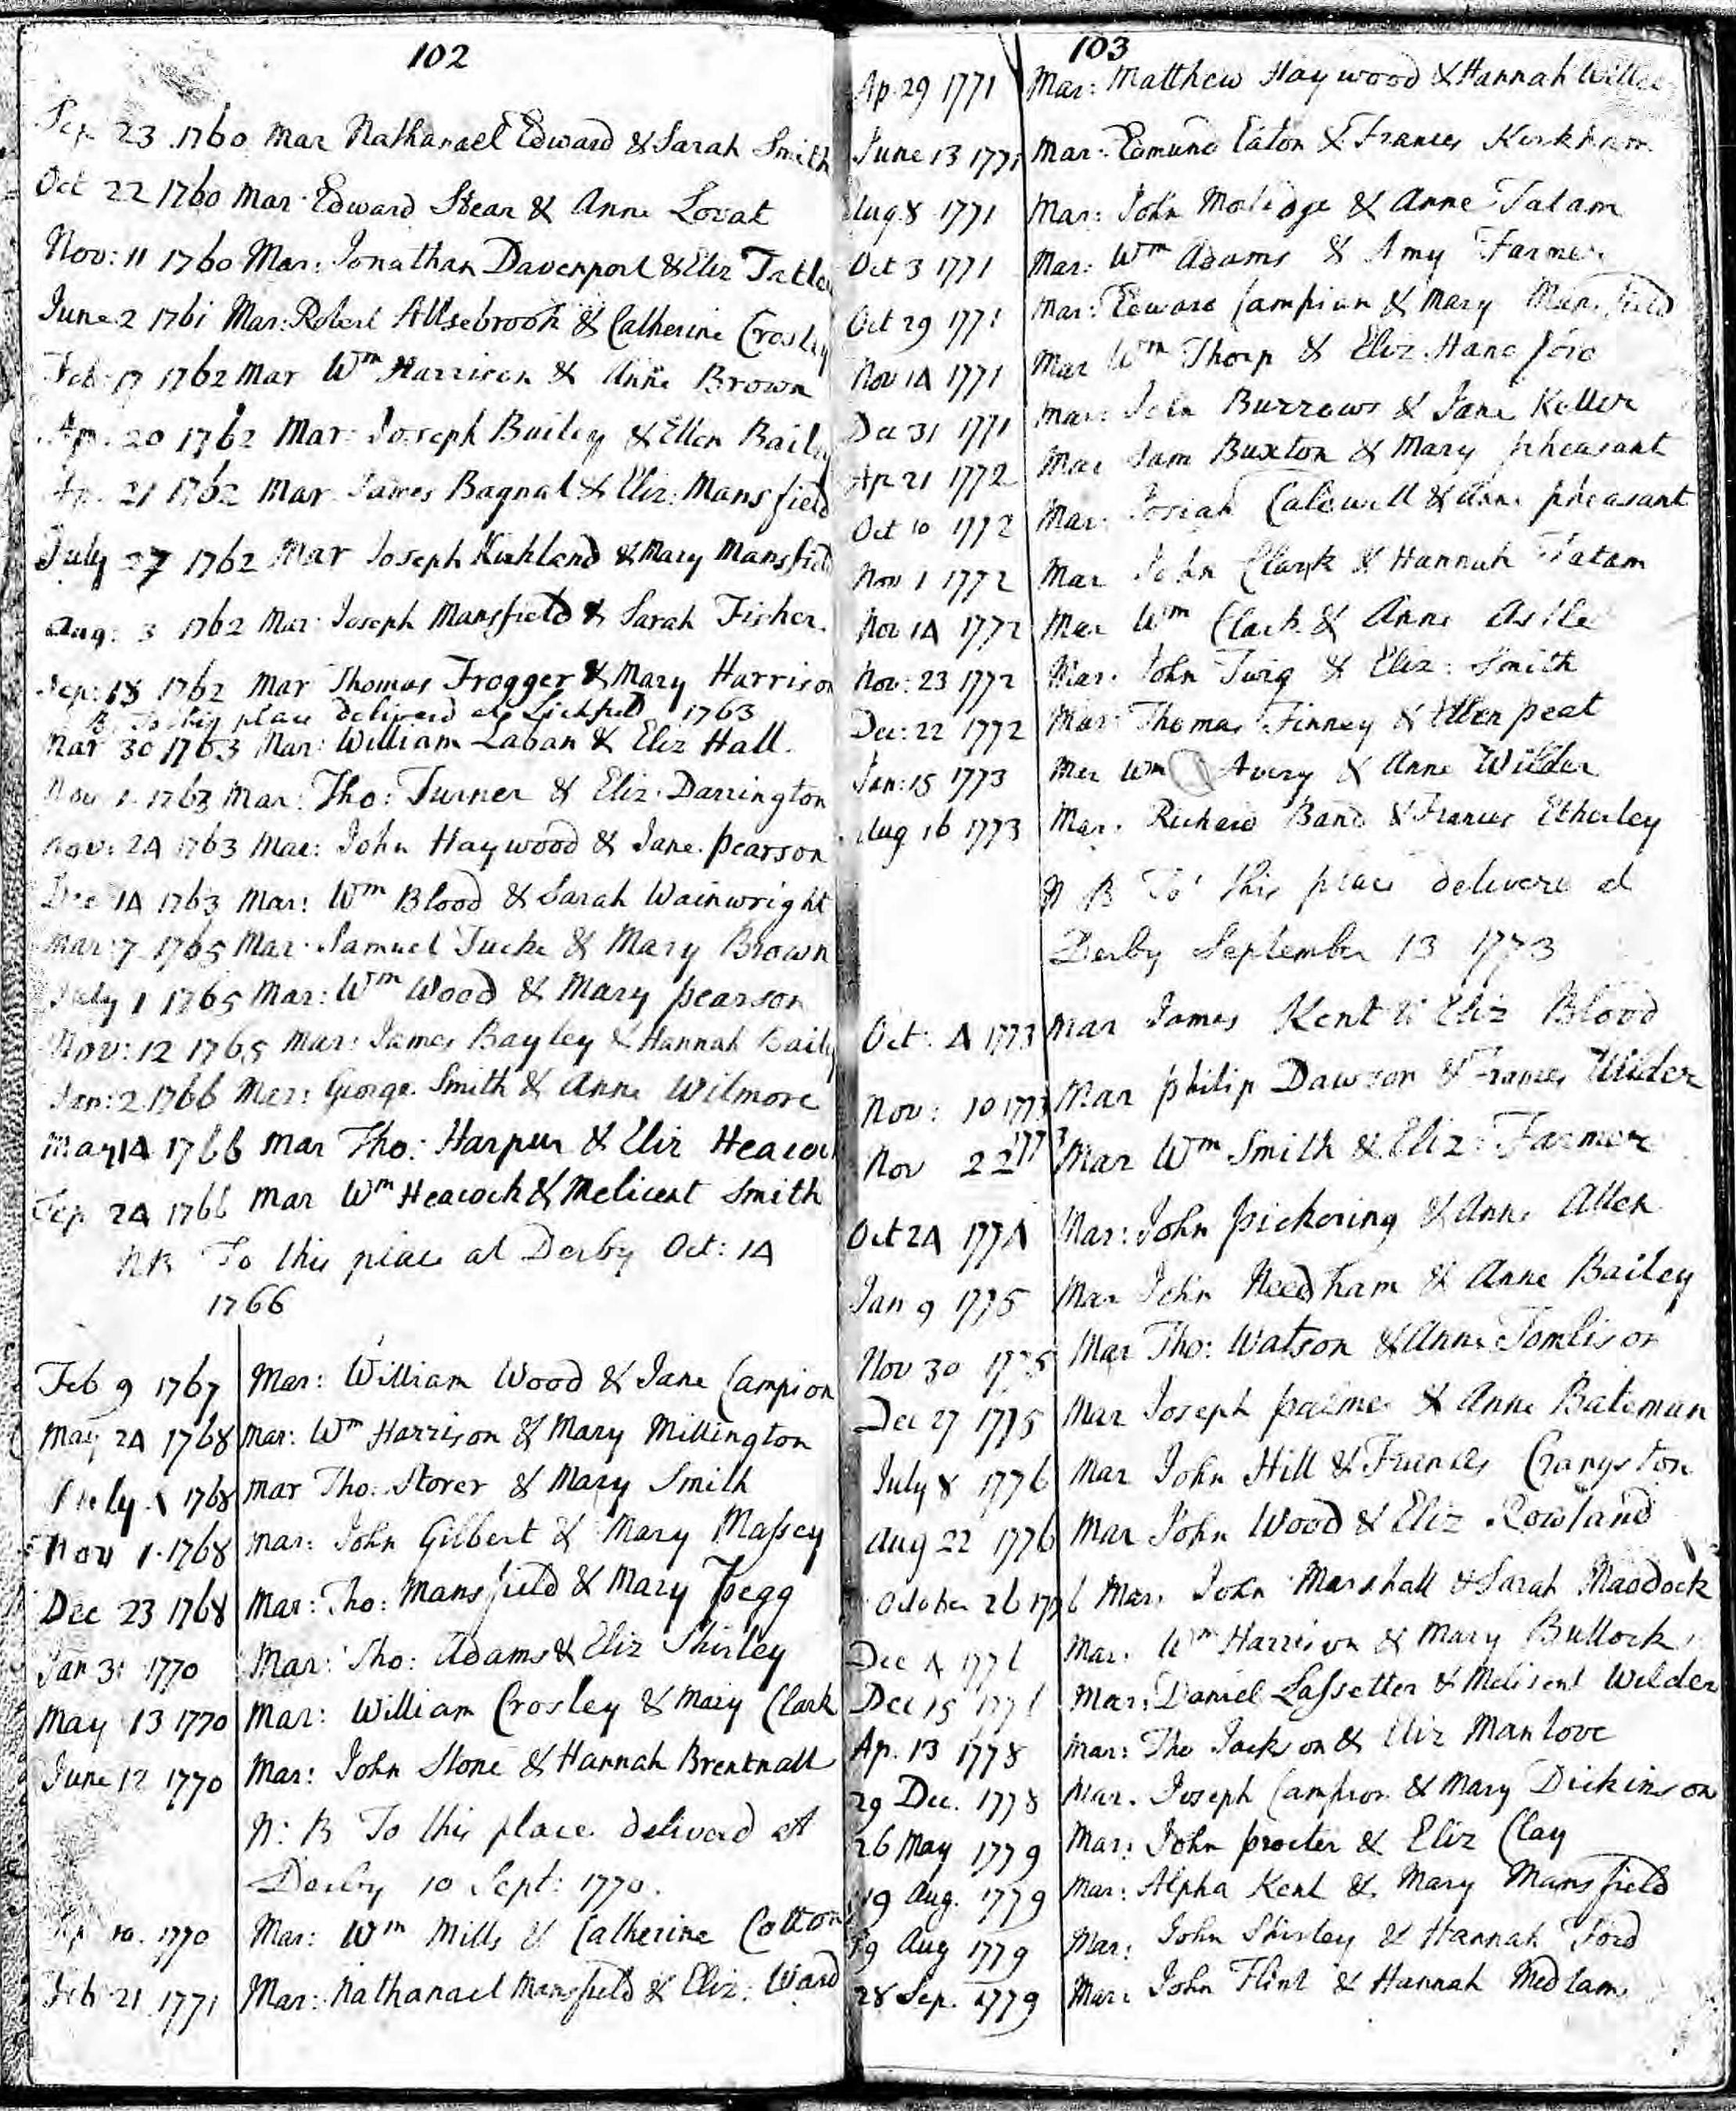 102
Sep 23 1760 Mar Nathanael Edward & Sarah Smith
Oct 22 1760 Mar: Edward Stear & Anne Lovat
Nov: 11 1760 Mar: Jonathan Davenport & Eliz Tatlo
June 2 1761 Mar: Robert Allsebrook & Catherine Crosley
Feb: 17 1762 Mar Wm Harrison & Anne Brown
Ap. 20 1762 Mar: Joseph Bailey & Ellen Baily
Ap. 21 1762 Mar James Bagnal & Eliz: Mansfield
July 27 1762 Mar Joseph Kirkland & Mary Mansfield
Aug: 3 1762 Mar: Joseph Mansfield & Sarah Fisher.
Sep: 18 1762 Mar Thomas Frogger & Mary Harrison
B. To this place delivered at Lichfield 1763
Mar 30 1763 Mar: William Laban & Eliz Hall.
Nov 1 1763 Mar: Tho: Turner & Eliz: Darrington
Nov: 24 1763 Mar: John Haywood & Jane pearson
Dec 14 1763 Mar: Wm Blood & Sarah Wainwright
Mar: 7 1765 Mar: Samuel Tucke & Mary Brown
July 1 1765 Mar: Wm Wood & Mary pearson
Nov: 12 1765 Mar: James Bayley & Hannah Baily
Jan: 2 1766 Mar: George Smith & Anne Wilmore
May 14 1766 Mar Tho: Harpur & Eliz Heacoc
Sep 24 1766 Mar Wm Heacock & Melicent Smith
NB To this place at Derby Oct: 14
1766
Feb 9 1767 Mar: William Wood & Jane Campion
May 24 1768 Mar: Wm Harrison & Mary Millington
July 4 1768 Mar Tho: Storer & Mary Smith
Nov 1 1768 Mar: John Gilbert & Mary Massey
Dec 23 1768 Mar: Tho: Mansfield & Mary Pegg
Jan 31 1770 Mar: Tho: Adams & Eliz Shirley
May 13 1770 Mar: William Crosley & Mary Clark
June 12 1770 Mar: John Stone & Hannah Brentnall
N: B To this place deliverd at
Derby 10 Sept: 1770.
Sep 10. 1770 Mar: Wm Mills & Catherine Cotton
Feb 21 1771 Mar: Nathanael Mansfield & Eliz: Ward
103
Ap 29 1771 Mar: Matthew Haywood & Hannah
June 13 1771 Mar: Edmund Eaton & Frances Kirkham
Aug 8 1771 Mar: John & Anne Tatam
Oct 3 1771 Mar: Wm Adams & Amy Farmer
Oct 29 1771 Mar: Edward Campion & Mary Mansfield
Nov 14 1771 Mar Wm Thorp & Eliz: Handford
Dec 31 1771 Mar: John Burrows & Jane Keller
Ap 21 1772 Mar Sam Buxton & Mary pheasant
Oct 10 1772 Mar: Josiah Caldwell & Anne pheasant
Nov 1 1772 Mar John Clark & Hannah Tatam
Nov 14 1772 Mar Wm Clark & Anne Astle
Nov: 23 1772 Mar: John Twig & Eliz: Smith
Dec: 22 1772 Mar: Thomas Finney & Ellen peat
Jan: 15 1773 Mar Wm Avery & Anne Wilder
Aug 16 1773 Mar: Richard Band & Frances Etherley
N B To this place delivered at
Derby September 13 1773
Oct: 4 1773 Mar James Kent & Eliz Blood
Nov: 10 1773 Mar philip Dawson & Frances Wilder
Nov 22 1773 Mar Wm Smith & Eliz: Farmer
Oct 24 1774 Mar: John pickering & Anne Allen
Jan 9 1775 Mar John Needham & Anne Bailey
Nov 30 1775 Mar Tho: Watson & Anne Tomlison
Dec 27 1775 Mar Joseph palmer & Anne Bateman
July 8 1776 Mar John Hill & Frances Crangston
Aug 22 1776 Mar John Wood & Eliz Rowland
October 26 1776 Mar: John Marshall & Sarah Maddock
Dec 4 1776 Mar: Wm Harrison & Mary Bullock
Dec 15 1776 Mar: Daniel Lassetter & Melisent Wilder
Ap. 13 1778 Mar: Tho Jackson & Eliz Manlove
29 Dec. 1778 Mar. Joseph Campion & Mary Dickinson
26 May 1779 Mar: John procter & Eliz Clay
19 Aug. 1779 Mar: Alpha Kent & Mary Mansfield
19 Aug 1779 Mar: John Shirley & Hannah Ford
28 Sep. 1779 Mar: John Flint & Hannah Medlam